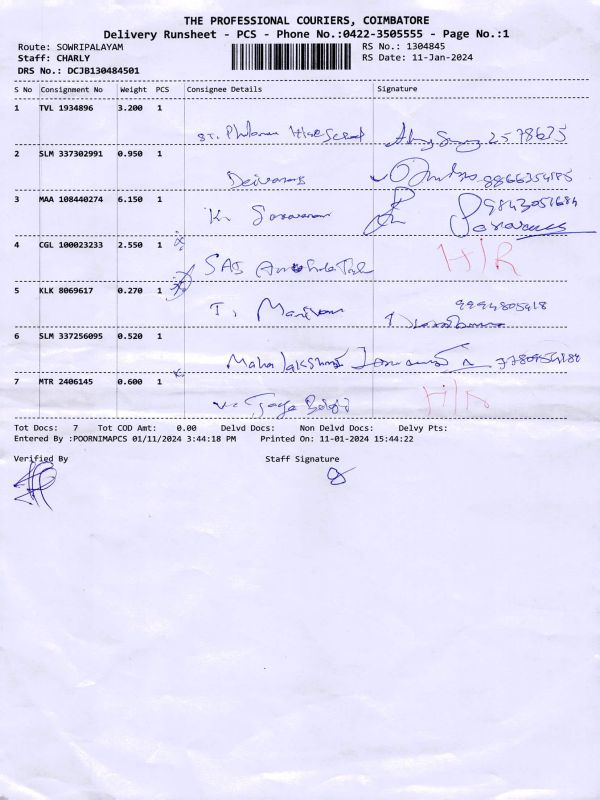 THE PROFESSIONAL COURIERS, COIMBATORE
Delivery Runsheet - PCS - Phone No.:0422-3505555 - Page No.:1
Route: SOWRIPALAYAM RS No.: 1304845
Staff: CHARLY RS Date: 11-Jan-2024
DRS No.: DCJB130484501
S No Consignment No Weight PCS Consignee Details Signature
1 TVL 1934896 3.200 1
ST. 2578675
2 SLM 337302991 0.950 1
3 MAA 108440274 6.150 1 9843051684
K. Saravanan
4 CGL 100023233 2.550 1 H/R
SAS
5 KLK 8069617 0.270 1
T. 9994805418
6 SLM 337256095 0.520 1
Maha lakshmi
7 MTR 2406145 0.600 1 H/R
Tot Docs: 7 Tot COD Amt: 0.00 Delvd Docs: Non Delvd Docs: Delvy Pts:
Entered By :POORNIMAPCS 01/11/2024 3:44:18 PM Printed On: 11-01-2024 15:44:22
Verified By Staff Signature